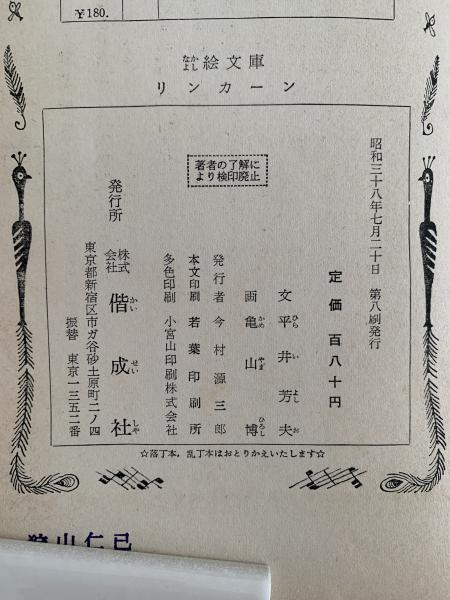 ¥180.
なかよし絵文庫
リンカーン
著者の了解に
より検印廃止
昭和三十八年七月二十日 第八刷発行
定価 百八十円
文 平井芳夫
ひらいよしお
画 亀山博
かめやまひろし
発行者 今村源三郎
本文印刷 若葉印刷所
多色印刷 小宮山印刷株式会社
発行所 株式会社 偕成社
かいせいしゃ
東京都新宿区市ガ谷砂土原町二ノ四
振替 東京一三五二番
☆落丁本,乱丁本はおとりかえいたします☆
山仁已